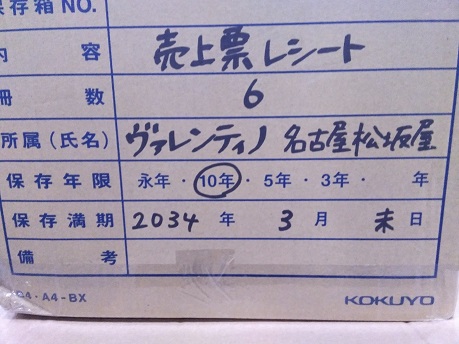 保存箱NO.
内 容 売上票レシート
冊 数 6
所属(氏名) ヴァレンティノ 名古屋松坂屋
保存年限 永年・10年・5年・3年・ 年
保存満期 2034 年 3 月 末 日
備 考
A4-BX KOKUYO